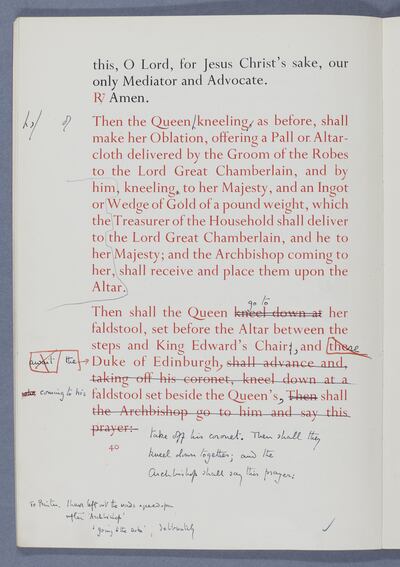 this, O Lord, for Jesus Christ's sake, our
only Mediator and Advocate.
℟ Amen.
Then the Queen kneeling, as before, shall
make her Oblation, offering a Pall or Altar-
cloth delivered by the Groom of the Robes
to the Lord Great Chamberlain, and by
him, kneeling, to her Majesty, and an Ingot
or Wedge of Gold of a pound weight, which
the Treasurer of the Household shall deliver
to the Lord Great Chamberlain, and he to
her Majesty; and the Archbishop coming to
her, shall receive and place them upon the
Altar.
go to
Then shall the Queen kneel down at her
faldstool, set before the Altar between the
steps and King Edward's Chair, and there
await the
Duke of Edinburgh, shall advance and,
taking off his coronet, kneel down at a
coming to his faldstool set beside the Queen's, Then shall
the Archbishop go to him and say this
prayer:-
take off his coronet. Then shall they
40
kneel down together; and the
Archbishop shall say this prayer:
To Printer. I have left out the words agreed upon
after 'Archbishop'
'going to the Altar', deliberately